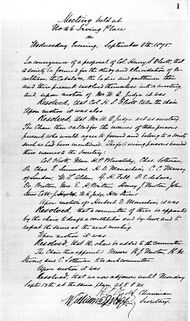 1
Meeting held at
No 46 Irving Place
on
Wednesday Evening, September 8th 1875
In consequence of a proposal of Col. Henry S. Olcott that
a Society be formed for the study and elucidation of
the ladies and gentlemen
resolved themselves into a meeting
and, upon motion of Mr W. Q. Judge it was
Resolved, that Col. H. S. Olcott take the chair.
Upon motion it was also
Resolved, that Mr. W. Q. Judge act as secretary.
The Chair then called for the names of the persons
present who would agree to found and belong to a Society
such as had been mentioned. The following persons handed
their names to the Secretary:
Col. Olcott, Mme. H. P. Blavatsky, Chas. Sotheran,
Dr. Chas. E. Simmons, H. D. Monachesi, C. C. Massey
of London, W. L. Alden, G. H. Felt, D. E. de Lara,
Dr. Britten, Mrs. E. H. Britten, Henry J. Newton, John
Storer Cobb, J. Hyslop, W. Q. Judge, H. M. Stevens.
Upon motion of Herbert D. Monachesi it was
Resolved, that a committee of three be appointed by
the chair to draft a constitution and by laws and to
report the same at the next meeting.
Upon motion it was
Resolved, that the chair be added to the committee.
The Chair then appointed Messrs. H. J. Newton, H. M.
Stevens and C. Sotheran to be such committee.
Upon motion it was
Resolved, that we now adjourn until Monday
Septr 13th at the same place at 8 P.M.
Chairman
William Q. Judge
Secretary.